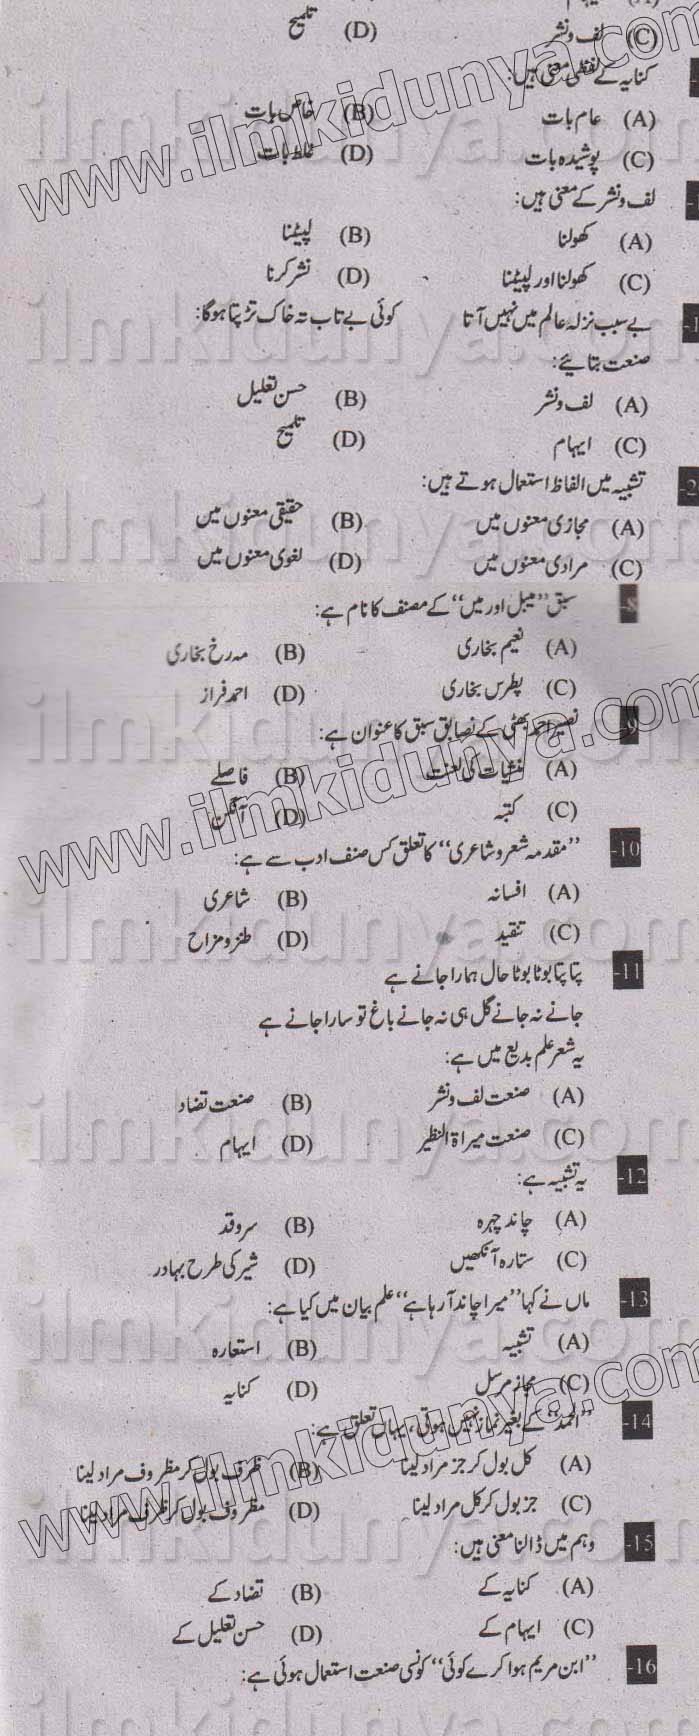 (C) لف ونشر (D) تلمیح
کنایہ کے لفظی معنی ہیں:
(A) عام بات (B) خاص بات
(C) پوشیدہ بات (D) غلط بات
لف ونشر کے معنی ہیں:
(A) کھولنا (B) لپیٹنا
(C) کھولنا اور لپیٹنا (D) نشر کرنا
بے سبب نزلہ عالم میں نہیں آتا کوئی بے تاب تہ خاک تڑپتا ہوگا:
صنعت بتائیے:
(A) لف ونشر (B) حسن تعلیل
(C) ایہام (D) تلمیح
تشبیہ میں الفاظ استعمال ہوتے ہیں:
(A) مجازی معنوں میں (B) حقیقی معنوں میں
(C) مرادی معنوں میں (D) لغوی معنوں میں
-8 سبق ”میبل اور میں“ کے مصنف کا نام ہے:
(A) نعیم بخاری (B) مہ رخ بخاری
(C) پطرس بخاری (D) احمد فراز
-9 نصیر احمد بھٹی کے نصابی سبق کا عنوان ہے:
(A) منشیات کی لعنت (B) فاصلے
(C) کتبہ (D) آنگن
-10 ”مقدمہ شعر و شاعری“ کا تعلق کس صنف ادب سے ہے:
(A) افسانہ (B) شاعری
(C) تنقید (D) طنز و مزاح
-11 پتا پتا بوٹا بوٹا حال ہمارا جانے ہے
جانے نہ جانے گل ہی نہ جانے باغ تو سارا جانے ہے
یہ شعر علم بدیع میں ہے:
(A) صنعت لف ونشر (B) صنعت تضاد
(C) صنعت میراۃ النظیر (D) ایہام
-12 یہ تشبیہ ہے:
(A) چاند چہرہ (B) سرو قد
(C) ستارہ آنکھیں (D) شیر کی طرح بہادر
-13 ماں نے کہا ”میرا چاند آ رہا ہے“ علم بیان میں کیا ہے:
(A) تشبیہ (B) استعارہ
(C) مجاز مرسل (D) کنایہ
-14 ”الحمد“ کے بغیر نماز نہیں ہوتی، یہاں تعلق ہے:
(A) کل بول کر جز مراد لینا (B) ظرف بول کر مظروف مراد لینا
(C) جز بول کر کل مراد لینا (D) مظروف بول کر ظرف مراد لینا
-15 وہم میں ڈالنا معنی ہیں:
(A) کنایہ کے (B) تضاد کے
(C) ایہام کے (D) حسن تعلیل کے
-16 ”ابن مریم ہوا کرے کوئی“ کونسی صنعت استعمال ہوئی ہے:
www.ilmkidunya.com
ilmkidunya.com